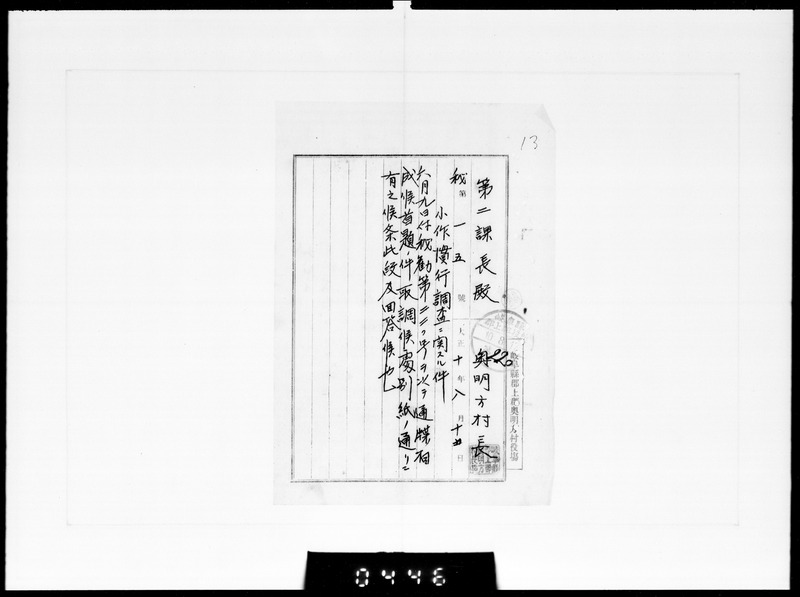 13
第二課長殿
奥明方村長
岐阜縣郡上郡奥明方村役場
秘第一五號 大正十年八月十五日
小作慣行調査ニ関スル件
六月九日付秘勧第二二〇号ヲ以テ通牒相
成候首題ノ件取調候處別紙ノ通リニ
有之候条此段及回答候也
0446